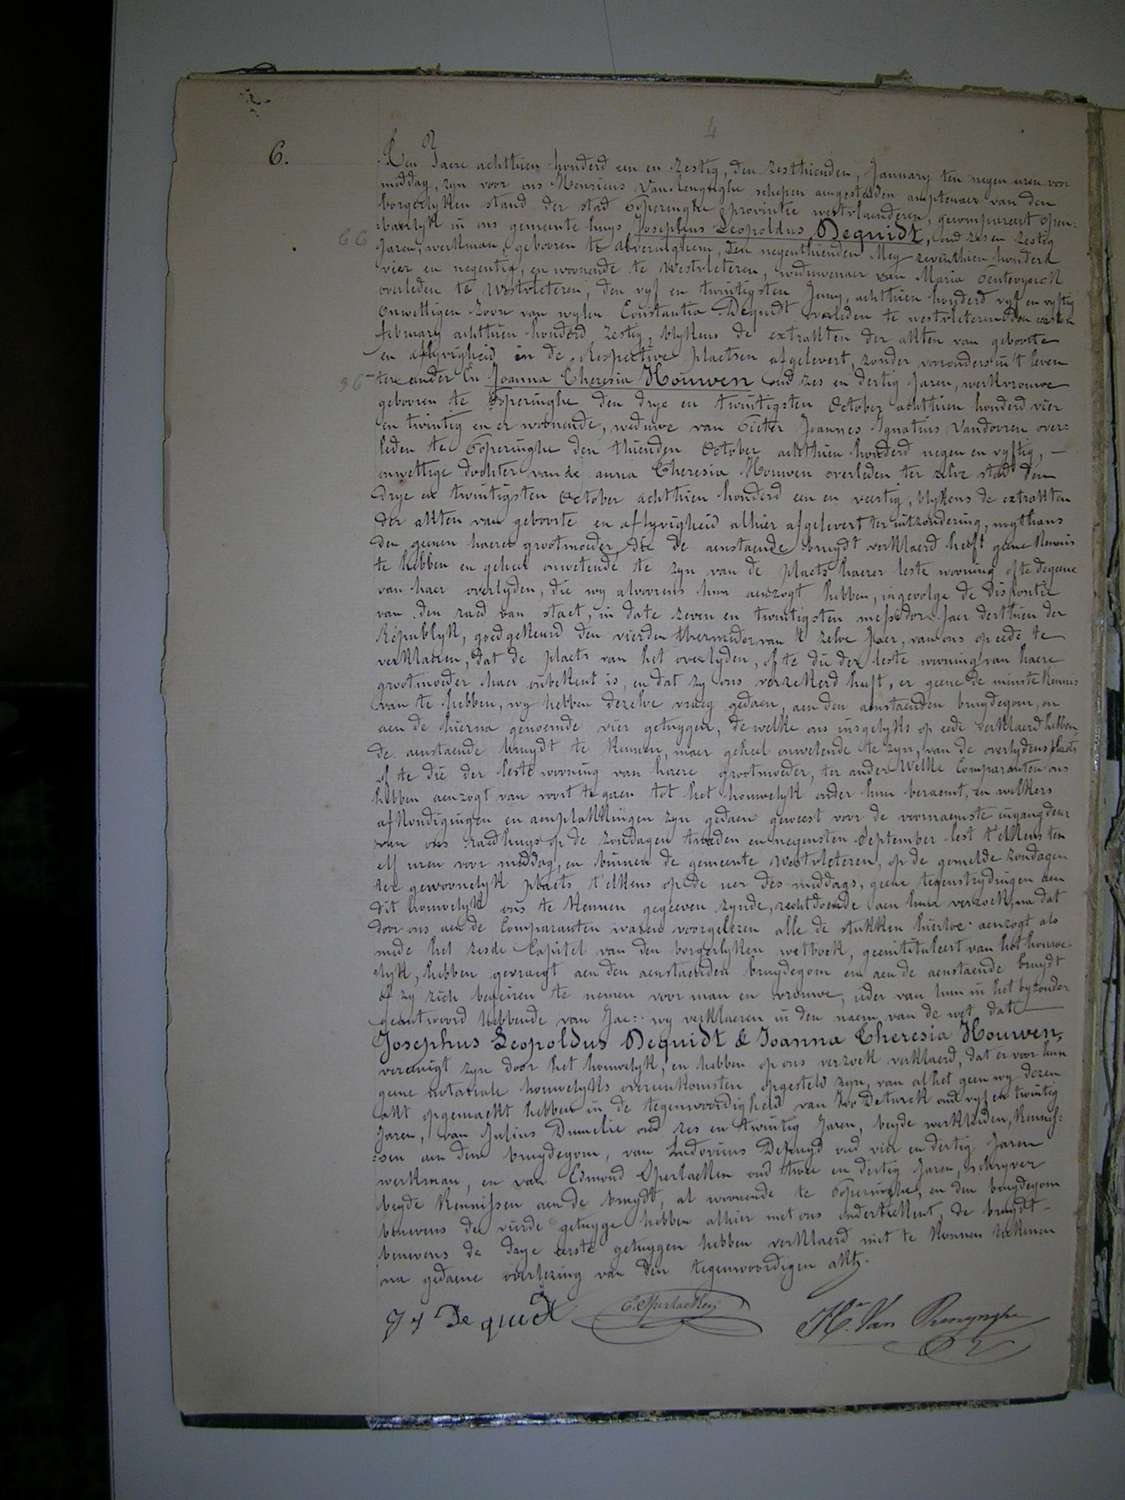 4
6.
Den Jaere achthien honderd een en zestig, den zesthienden, January ten negen uren voor
middag, zyn voor ons Henricus Van Renynghe schepen aengestelden amptenaer van den
borgerlyken stand der stad Poperinghe provintie westvlaenderen, gecompareert open-
baerlyk in ons gemeente huys, Josephus Leopoldus Dequidt, oud zes en zestig
66
Jaren, werkman, gebooren te alveringhem, den negenthienden Mey zeventhien honderd
vier en negentig, en woonende te Westvleteren, weduwenaer van Maria
overleden te westvleteren, den vyf en twintigsten Juny, achthien honderd vyf en vyftig
onwettigen zoon van wylen Constantia Dequidt overleden te westvleteren den eersten
february achthien honderd zestig, blykens de extrakten der akten van geboorte
en aflyvigheid in de Respective plaetsen afgelevert, zonder voorouders in 't leven
36
ter ander En Joanna Theresia Houwen oud zes en dertig Jaren, werkvrouwe
gebooren te Poperinghe den drye en twintigsten October achthien honderd vier
en twintig en er woonende, weduwe van Pieter Joannes Ignatius Vandooren over-
leden te Poperinghe den thienden October achthien honderd negen en vyftig, —
onwettige dochter van de anna Theresia Houwen overleden ter zelve stad den
drye en twintigsten October achthien honderd een en veertig, blykens de extrakten
der akten van geboorte en aflyvigheid alhier afgelevert ter uitzondering, nogthans
den geenen haerer grootmoeder, die de aenstaende bruydt verklaerd heeft geene Kennis
te hebben en geheel onwetende te zyn van de plaets haerer leste wooning ofte degeene
van haer overlyden, die wy alvoorens hun aenzogt hebben, ingevolge de dispositie
van den raed van staet, in date zeven en twintigsten messidor Jaer derthien der
Républyk, goedgekeurd den vierden thermidor van 't zelve Jaer, van ons op eede te
verklaeren, dat de plaets van het overlyden, ofte die der leste wooning van haere
grootmoeder haer onbekent is, en dat zy ons verzekerd heeft, er geene de minste Kennis
van te hebben, wy hebben dezelve vraeg gedaen, aen den aenstaenden bruydegom, en
aen de hierna genoemde vier getuygen, de welke ons insgelyks op eede verklaerd hebben
de aenstaende bruydt te Kennen, maer geheel onwetende te zyn, van de overlydens plaets
ofte die der leste wooning van haere grootmoeder, ter ander Welke Comparanten ons
hebben aenzogt van voort te gaen tot het houwelyk onder hun beraemt, en welkers
afkondigingen en aenplakkingen zyn gedaen geweest voor de voornaemste ingangdeur
van ons raedhuys op de zondagen tweeden en negensten September lest t'elkens ten
elf uren voor middag, en binnen de gemeente westvleteren, op de gemelde zondagen
ter gewoonelyk plaets t'elkens op de uer des middags, geene tegenstrydingen aen
dit houwelyk ons te Kennen gegeeven zynde, rechtdoende aen hun verzoek, na dat
door ons aen de Comparanten waren voorgelezen alle de stukken hiertoe aenzogt als
mede het zesde Capittel van den borgerlyken wetboek, geeintituleert van het houwe-
lyk, hebben gevraegt aen den aenstaenden bruydegom en aen de aenstaende bruydt
of zy zich begeiren te nemen voor man en vrouwe, ieder van hun in het byzonder
geantwoord hebbende van Jae: wy verklaeren in den naem van de wet, dat —
Josephus Leopoldus Dequidt & Joanna Theresia Houwen,
vereenigt zyn door het houwelyk, en hebben op ons verzoek verklaerd, dat er voor hun
geene notariale houwelyks overeenkomsten opgesteld zyn, van al het geen wy dezen
akt opgemaekt hebben in de tegenwoordigheid van Ivo Deturck oud vyf en twintig
Jaren, van Julius oud zes en twintig Jaren, beyde werklieden, Kennis-
sen aen den bruydegom, van Ludovicus oud vier en dertig Jaren
werkman, en van Edmond Sperlaeken oud twee en dertig Jaren, schryver
beyde Kennissen aen de bruydt, al woonende te Poperinghe, en den bruydegom
benevens de vierde getuyge hebben alhier met ons onderteekent, de bruydt
benevens de drye eerste getuygen hebben verklaerd niet te Konnen teekenen
na gedaene voorlezing van den tegenwoordigen akt.
De quidt
H.ri Van Renynghe